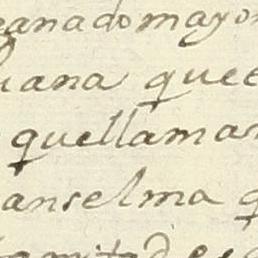 ganado mayor
iana que e
quellaman
anselma q